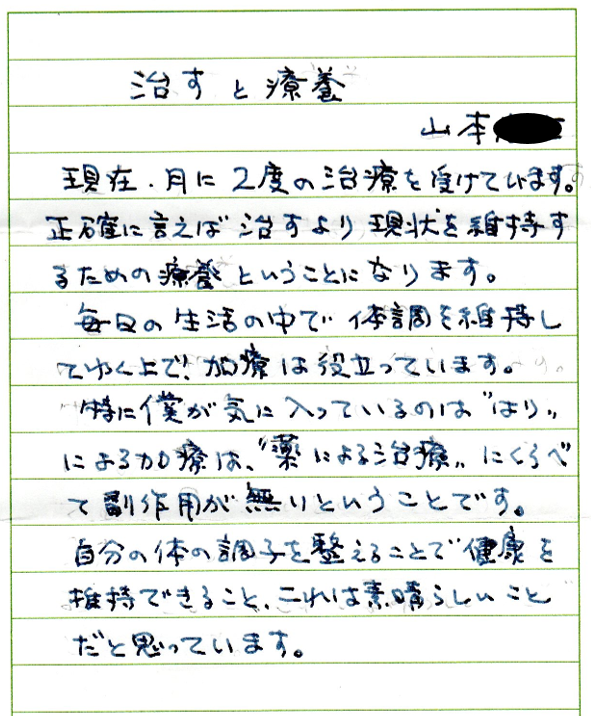 治すと療養
山本
現在、月に2度の治療を受けています。
正確に言えば治すより現状を維持す
るための療養ということになります。
毎日の生活の中で体調を維持し
てゆく上で、加療は役立っています。
特に僕が気に入っているのは〝はり〟
による加療は、〝薬による治療〟にくらべ
て副作用が無いということです。
自分の体の調子を整えることで健康を
維持できること、これは素晴らしいこと
だと思っています。